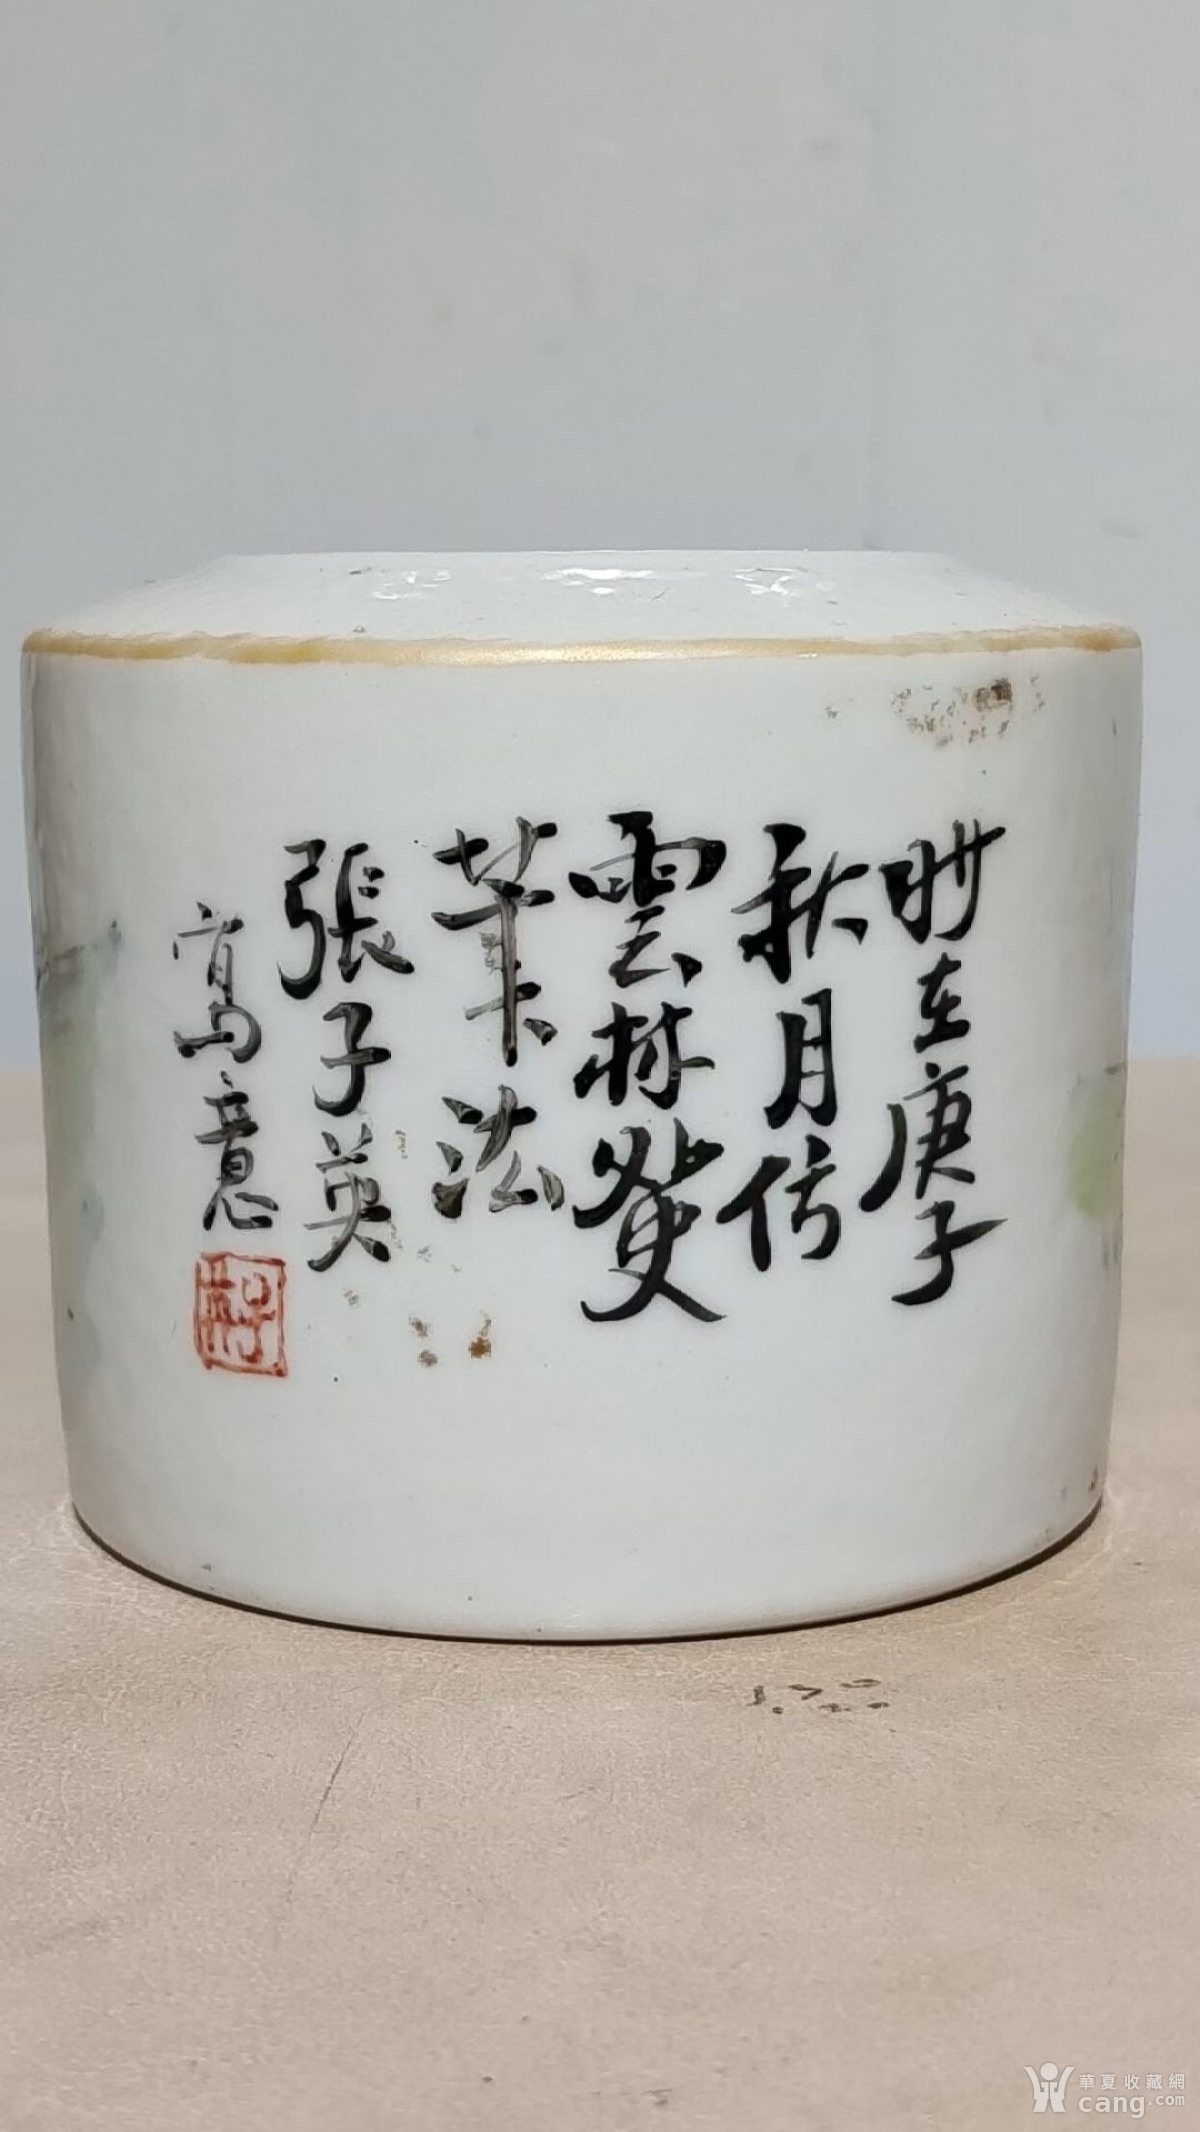 時在庚子
秋月仿
雲林發
筆法
張子英
寫意
華夏收藏網
cang.com